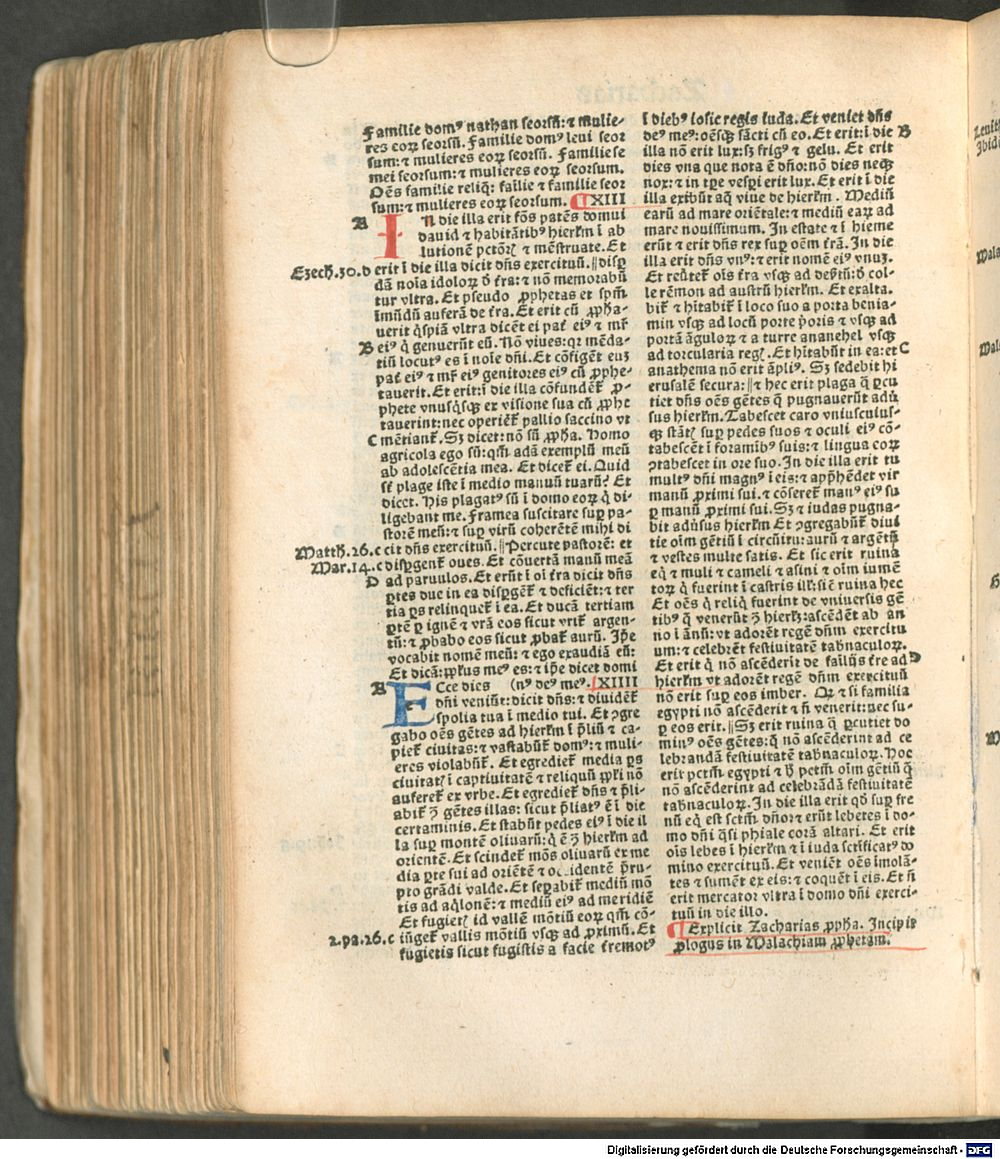 Familie domꝰ nathan seorsū: ⁊ mulie-
res eoꝝ seorsū. Familie domꝰ leui seor
sum: ⁊ mulieres eoꝝ seorsū. Familie se
mei seorsum: ⁊ mulieres eoꝝ seorsum.
Oēs familie reliq̄: failie ⁊ familie seor
sum: ⁊ mulieres eoꝝ seorsum. XIII
A IN die illa erit fōs patēs domui
dauid ⁊ habitātibꝰ hierłm ī ab
lutionē pctōꝝ ⁊ mēstruate. Et
Ezech.30.d erit ī die illa dicit dn̄s exercituū. ‖ disꝑ
dā noīa idoloꝝ d̄ t̄ra: ⁊ nō memorabū
tur vltra. Et pseudo ꝓphetas et spm̄
īmūdū auferā de t̄ra. Et erit cū ꝓpha-
uerit q̄spiā vltra dicēt ei pat̄ eiꝰ ⁊ mr̄
B eiꝰ q̄ genuerūt eū. Nō viues: qr mēda-
tiū locutꝰ es ī noīe dn̄i. Et cōfigēt euꝫ
pat̄ eiꝰ ⁊ mr̄ eiꝰ genitores eiꝰ cū ꝓphe-
tauerit. Et erit: ī die illa cōfundēt̄ ꝓ-
phete vnusq̄sqꝫ ex visione sua cū ꝓphe
tauerint: nec operiēt̄ pallio saccino vt
C mētiant̄. Sꝫ dicet: nō sū ꝓpha. Homo
agricola ego sū: qm̄ adā exemplū meū
ab adolescētia mea. Et dicet̄ ei. Quid
st̄ plage iste ī medio manuū tuarū? Et
dicet. His plagatꝰ sū ī domo eoꝝ q̄ di-
ligebant me. Framea suscitare suꝑ pa-
storē meū: ⁊ suꝑ virū coherētē mihi di
Matth.26.c cit dn̄s exercituū. ‖ Percute pastorē: et
Mar.14.c disꝑgent̄ oues. Et cōuertā manū meā
D ad paruulos. Et erūt ī oī t̄ra dicit dn̄s
ꝑtes due in ea disꝑgēt̄ ⁊ deficiēt: ⁊ ter
tia ꝑs relinquet̄ ī ea. Et ducā tertiam
ꝑtē ꝑ ignē ⁊ vrā eos sicut vrit̄ argen-
tū: ⁊ ꝓbabo eos sicut ꝓbat̄ aurū. Ip̄e
vocabit nomē meū: ⁊ ego exaudiā eū:
Et dicā: pp̄lus meꝰ es: ⁊ ip̄e dicet domi
A ECce dies (nꝰ deꝰ meꝰ. XIIII
dn̄i veniūt: dicit dn̄s: ⁊ diuidēt̄
spolia tua ī medio tui. Et ↄgre
gabo oēs gētes ad hierłm ī p̄liū ⁊ ca-
piet̄ ciuitas: ⁊ vastabūt̄ domꝰ: ⁊ muli-
eres violabūt̄. Et egrediet̄ media ꝑs
ciuitat̄ ī captiuitatē ⁊ reliquū pp̄li nō
auferet̄ ex vrbe. Et egrediet̄ dn̄s ⁊ p̄li-
abit̄ ↄ̄ gētes illas: sicut p̄liatꝰ ē ī die
certaminis. Et stabūt pedes eiꝰ ī die il
la suꝑ montē oliuarū: q̄ ē ↄ̄ hierłm ad
orientē. Et scindet̄ mōs oliuarū ex me
dia ꝑte sui ad oriētē ⁊ occidentē p̄ru-
pto grādi valde. Et seꝑabit̄ mediū mō
tis ad aq̄lonē: ⁊ mediū eiꝰ ad meridiē
Et fugiet̄ ad vallē mōtiū eoꝝ qm̄ cō-
2.pa.26.c iūget̄ vallis mōtiū vsqꝫ ad ꝓximū. Et
fugietis sicut fugistis a facie t̄remotꝰ
ī diebꝰ iosie regis iuda. Et veniet dn̄s
deꝰ meꝰ: oēsqꝫ sācti cū eo. Et erit: ī die B
illa nō erit lux: sꝫ frigꝰ ⁊ gelu. Et erit
dies vna que nota ē dn̄o: nō dies neqꝫ
nox: ⁊ in tp̄e vesp̄i erit lux. Et erit ī die
illa exibūt aq̄ viue de hierłm. Mediū
earū ad mare oriētale: ⁊ mediū eaꝝ ad
mare nouissimum. In estate ⁊ ī hieme
erūt ⁊ erit dn̄s rex suꝑ oēm t̄rā. In die
illa erit dn̄s vnꝰ: ⁊ erit nomē eiꝰ vnuꝫ.
Et reūtet̄ oīs t̄ra vsqꝫ ad deẜtū: d̄ col-
le rēmon ad austrū hierłm. Et exalta-
bit̄ ⁊ hītabit̄ ī loco suo a porta benia-
min vsqꝫ ad locū porte p̄oris ⁊ vsqꝫ ad
portā āguloꝝ ⁊ a turre ananehel vsqꝫ
ad torcularia reḡ. Et hītabūt in ea: et C
anathema nō erit āpliꝰ. Sꝫ sedebit hi
erusalē secura: ‖ ⁊ hec erit plaga q̄ ꝑcu
tiet dn̄s oēs gētes q̄ pugnauerūt adū
sus hierłm. Tabescet caro vniuscuius-
qꝫ stāt̄ suꝑ pedes suos ⁊ oculi eiꝰ cō-
tabescēt ī foramībꝰ suis: ⁊ lingua eoꝝ
ↄtabescet in ore suo. In die illa erit tu
multꝰ dn̄i magnꝰ ī eis: ⁊ app̄hēdet vir
manū ꝓximi sui. ⁊ cōseret̄ manꝰ eiꝰ su
ꝑ manū ꝓximi sui. Sꝫ ⁊ iudas pugna-
bit adūsus hierłm Et ↄgregabūt̄ diui
tie oīm gētiū ī circūitu: aurū ⁊ argētū
⁊ vestes multe satis. Et sic erit ruina
eq̄ ⁊ muli ⁊ cameli ⁊ asini ⁊ oīm iumē
toꝝ q̄ fuerint ī castris ill̄: siē ruina hec
Et oēs q̄ reliq̄ fuerint de vniuersis gē
tibꝰ q̄ venerūt ↄ̄ hierłꝫ: ascēdēt ab an
no ī ānū: vt adorēt regē dn̄m exercitu
um: ⁊ celebrēt festiuitatē tab̄naculoꝝ.
Et erit q̄ nō ascēderit de failijs t̄re ad D
hierłm vt adorēt regē dn̄m exercituū
nō erit suꝑ eos imber. Qꝛ ⁊ si familia
egypti nō ascēderit ⁊ n̄ venerit: nec su-
ꝑ eos erit. ‖ Sꝫ erit ruina q̄ ꝑcutiet do
minꝰ oēs gētes: q̄ nō ascēderint ad ce
lebrandā festiuitatē tab̄naculoꝝ. Hoc
erit pctm̄ egypti ⁊ h̄ pctm̄ oīm gētiū q̄
nō ascēderint ad celebrādā festiuitatē
tab̄naculoꝝ. In die illa erit qd̄ suꝑ fre
nū eq̄ est sctm̄ dn̄o: ⁊ erūt lebetes ī do-
mo dn̄i q̄si phiale corā altari. Et erit
oīs lebes ī hierłm ⁊ ī iuda sctīficatꝰ do
mino exercituū. Et veniēt oēs imolā-
tes ⁊ sumēt ex eis: ⁊ coquēt ī eis. Et n̄
erit mercator vltra ī domo dn̄i exerci-
tuū in die illo.
Explicit Zacharias ꝓpha. Incipit
ꝓlogus in Malachiam ꝓphetam.
Digitalisierung gefördert durch die Deutsche Forschungsgemeinschaft - DFG